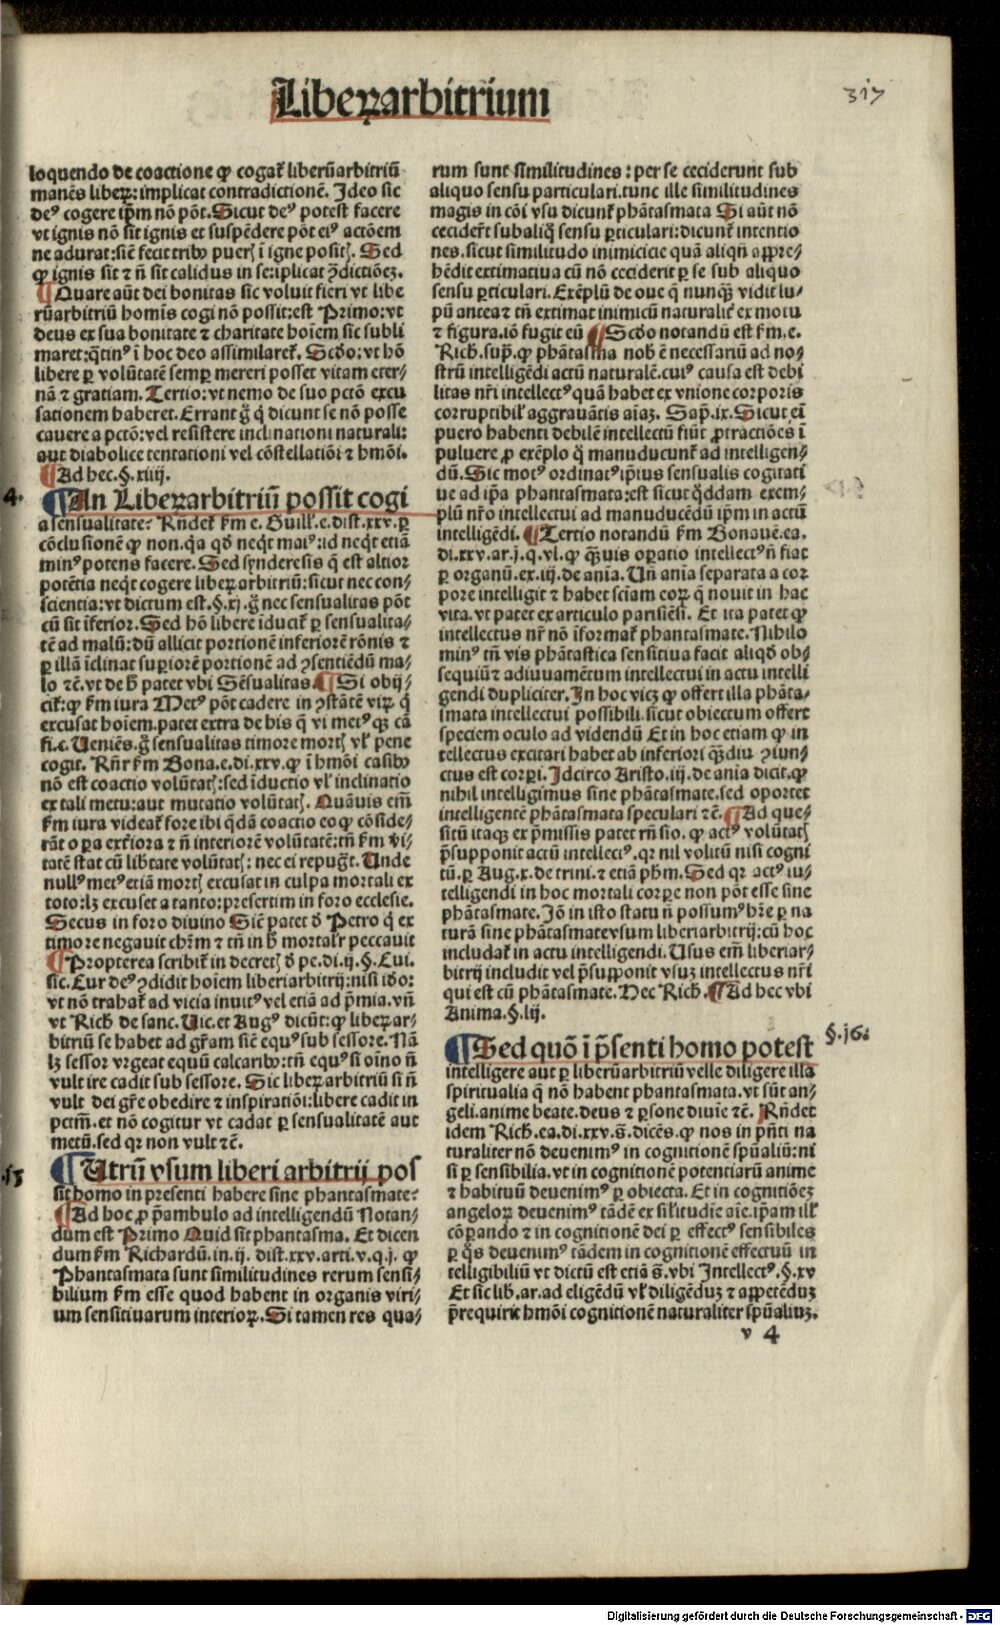 Liberꝝarbitrium
317
loquendo de coactione ꝙ cogat̃ liberũarbitriũ
manẽs liberꝝ: implicat contradictionẽ. Ideo sic
deꝰ cogere ip̃m nõ põt. Sicut deꝰ potest facere
vt ignis nõ sit ignis et suspẽdere põt eiꝰ actõem
ne adurat: siẽ fecit tribꝰ puerꝭ ĩ igne positꝭ. Sed
ꝙ ignis sit ⁊ ñ sit calidus in se: iplicat ꝯdictiõeꝫ.
¶ Quare aũt dei bonitas sic voluit fieri vt libe
rũarbitriũ homĩs cogi nõ possit: est Primo: vt
deus ex sua bonitate ⁊ charitate hoĩem sic subli
maret: q̃tinꝰ ĩ hoc deo assimilaret̃. Scďo: vt hõ
libere ꝑ volũtatẽ semꝑ mereri posset vitam eter⸗
nã ⁊ gratiam. Tertio: vt nemo de suo pctõ excu
sationem haberet. Errant g̃ q̃ dicunt se nõ posse
cauere a pctõ: vel resistere inclinationi naturali:
aut diabolice tentationi vel cõstellatiõi ⁊ hmõi.
¶ Ad hec. §. xiiij.
4.
¶ An Liberꝝarbitriũ possit cogi
a sensualitate? Rñdet ẜm e. Guill. e. dist. xxv. ꝑ
cõclusionẽ ꝙ non. q̃a qď neq̃t maiꝰ: id neq̃t etiã
minꝰ potens facere. Sed synderesis q̃ est altior
potẽtia neq̃t cogere liberꝝarbitriũ: sicut nec con⸗
scientia: vt dictum est. §. xj. g̃ nec sensualitas põt
cũ sit ĩferior. Sed hõ libere ĩducit̃ ꝑ sensualita⸗
tẽ ad malũ: dũ allicit portionẽ inferiorẽ rõnis ⁊
ꝑ illã ĩclinat suꝑiorẽ portionẽ ad ꝯsentiẽdũ ma⸗
lo ⁊ẽ. vt de h̃ patet vbi Sẽsualitas. ¶ Si obij⸗
cit̃: ꝙ ẜm iura Metꝰ põt cadere in ꝯstãtẽ virꝝ q̃
excusat hoĩem. patet extra de his q̃ vi metꝰqꝫ cã
fi. c. Ueniẽs. g̃ sensualitas timore mortꝭ vl̃ pene
cogit. Rñr ẜm Bona. e. di. xxv. ꝙ ĩ hmõi casibꝰ
nõ est coactio volũtatꝭ: sed ĩductio vl̃ inclinatio
ex tali metu: aut mutatio volũtatꝭ. Quãuis em̃
ẜm iura videat̃ fore ibi q̃dã coactio eo ꝙ cõside⸗
rãt oꝑa exteriora ⁊ ñ interiorẽ volũtatẽ: tñ ẜm vi⸗
tatẽ stat cũ lib̃tate volũtatꝭ: nec ei repugt̃. Unde
nullꝰ metꝰ etiã mortꝭ excusat in culpa mortali ex
toto: lꝫ excuset a tanto: presertim in foro ecclesie.
Secus in foro diuino Siẽ patet ď Petro q̃ ex
timore negauit chr̃m ⁊ tñ in h̃ mortalr̃ peccauit
¶ Propterea scribit̃ in decretꝭ ď pe. di. ij. §. Cui.
sic. Cur deꝰ ꝯdidit hoĩem liberiarbitrij: nisi idõ:
vt nõ trahat̃ ad vicia inuitꝰ vel etiã ad p̃mia. vñ
vt Rich̃ de sanc. Uic. et Augꝰ dicũt: ꝙ liberꝝar⸗
bitriũ se habet ad gr̃am siẽ equꝰ sub sessore. Nã
lꝫ sessor vrgeat equũ calcaribꝰ: tñ equꝰ si oĩno ñ
vult ire cadit sub sessore. Sic liberꝝarbitriũ si ñ
vult dei gr̃e obedire ⁊ inspiratiõi: libere cadit in
pctm̃. et nõ cogitur vt cadat ꝑ sensualitatẽ aut
metũ. sed qꝛ non vult ⁊ẽ.
15
¶ Utrũ vsum liberi arbitrij pos
sit homo in presenti habere sine phantasmate?
¶ Ad hoc ꝓ p̃ambulo ad intelligendũ Notan⸗
dum est Primo Quid sit phantasma. Et dicen
dum ẜm Richardũ. in. ij. dist. xxv. arti. v. q. j. ꝙ
Phantasmata sunt similitudines rerum sensi⸗
bilium ẜm esse quod habent in organis viri⸗
um sensitiuarum interioꝝ. Si tamen res qua⸗
rum sunt similitudines: per se ceciderunt sub
aliquo sensu particulari. tunc ille similitudines
magis in cõi vsu dicunt̃ phãtasmata Si aũt nõ
cecider̃t sub aliq̃ sensu ꝑticulari: dicunt̃ intentio
nes. sicut similitudo inimicicie quã aliqñ appre⸗
hẽdit extimatiua cũ nõ ceciderit ꝑ se sub aliquo
sensu ꝑticulari. Exẽplũ de oue q̃ nunq̃ vidit lu⸗
pũ antea ⁊ tñ extimat inimicũ naturalit̃ ex motu
⁊ figura. iõ fugit eũ ¶ Scďo notandũ est ẜm. e.
Rich. sup̃. ꝙ phãtasma nob̃ ẽ necessariũ ad no⸗
strũ intelligẽdi actũ naturalẽ. cuiꝰ causa est debi
litas nr̃i intellectꝰ quã habet ex vnione corporis
corruptibil̃ aggrauãtis aĩaꝫ. Sap̃. ix. Sicut eĩ
puero habenti debilẽ intellectũ fiũt ꝓtractiões ĩ
puluere ꝓ exẽplo q̃ manuducunt̃ ad intelligen⸗
dũ. Sic motꝰ ordinatꝰ ip̃ius sensualis cogitati
ue ad ip̃a phantasmata: est sicut q̃ddam exem⸗
plũ nr̃o intellectui ad manuducẽdũ ip̃m in actũ
intelligẽdi. ¶ Tertio notandũ ẜm Bonauẽ. ea.
di. xxv. ar. j. q. vl. ꝙ q̃uis oꝑatio intellectꝰ ñ fiat
ꝑ organũ. ex. iij. de anĩa. Uñ anĩa separata a cor
pore intelligit ⁊ habet sciam eorꝝ q̃ nouit in hac
vita. vt patet ex articulo parisiẽsi. Et ita patet ꝙ
intellectus nr̃ nõ ĩformat̃ phantasmate. Nihilo
minꝰ tñ vis phãtastica sensitiua facit aliqď ob⸗
sequiũ ⁊ adiuuamẽtum intellectui in actu intelli
gendi dupliciter. In hoc vicꝫ ꝙ offert illa phãta⸗
smata intellectui possibili. sicut obiectum offert
speciem oculo ad videndũ Et in hoc etiam ꝙ in
tellectus excitari habet ab inferiori q̃diu ꝯiun⸗
ctus est corꝑi. Idcirco Aristo. iij. de anĩa dicit. ꝙ
nihil intelligimus sine phãtasmate. sed oportet
intelligentẽ phãtasmata speculari ⁊ẽ. ¶ Ad que⸗
sitũ itaqꝫ ex p̃missis patet rñsio. ꝙ actꝰ volũtatꝭ
p̃supponit actũ intellectꝰ. qꝛ nil volitũ nisi cogni
tũ. ꝑ Aug. x. de trini. ⁊ etiã phm̃. Sed qꝛ actꝰ in⸗
telligendi in hoc mortali corpe non põt esse sine
phãtasmate. Iõ in isto statu ñ possumꝰ hr̃e ꝑ na
turã sine phãtasmate vsum liberiarbitrij: cũ hoc
includat̃ in actu intelligendi. Usus em̃ liberiar⸗
bitrij includit vel p̃supponit vsuꝫ intellectus nr̃i
qui est cũ phãtasmate. Hec Rich. ¶ Ad hec vbi
Anima. §. lij.
§. 16.
¶ Sed quõ ĩ p̃senti homo potest
intelligere aut ꝑ liberũarbitriũ velle diligere illa
spiritualia q̃ nõ habent phantasmata. vt sũt an⸗
geli. anime beate. deus ⁊ ꝑsone diuĩe ⁊ẽ. Rñdet
idem Rich. ea. di. xxv. s̃. dicẽs. ꝙ nos in p̃nti na
turaliter nõ deuenimꝰ in cognitionẽ sp̃ualiũ: ni
si ꝑ sensibilia. vt in cognitionẽ potentiarũ anime
⁊ habituũ deuenimꝰ ꝑ obiecta. Et in cognitiõeꝫ
angeloꝝ deuenimꝰ tãdẽ ex sil̃itudĩe aĩe. ip̃am ill̃
cõꝑando ⁊ in cognitionẽ dei ꝑ effectꝰ sensibiles
ꝑ q̃s deuenimꝰ tãdem in cognitionẽ effectuũ in
telligibiliũ vt dictũ est etiã s̃. vbi Intellectꝰ. §. xv
Et sic lib̃. ar. ad eligẽdũ vl̃ diligẽduꝫ ⁊ appetẽduꝫ
p̃requirit hmõi cognitionẽ naturaliter sp̃ualiuꝫ.
v 4
Digitalisierung gefördert durch die Deutsche Forschungsgemeinschaft - DFG